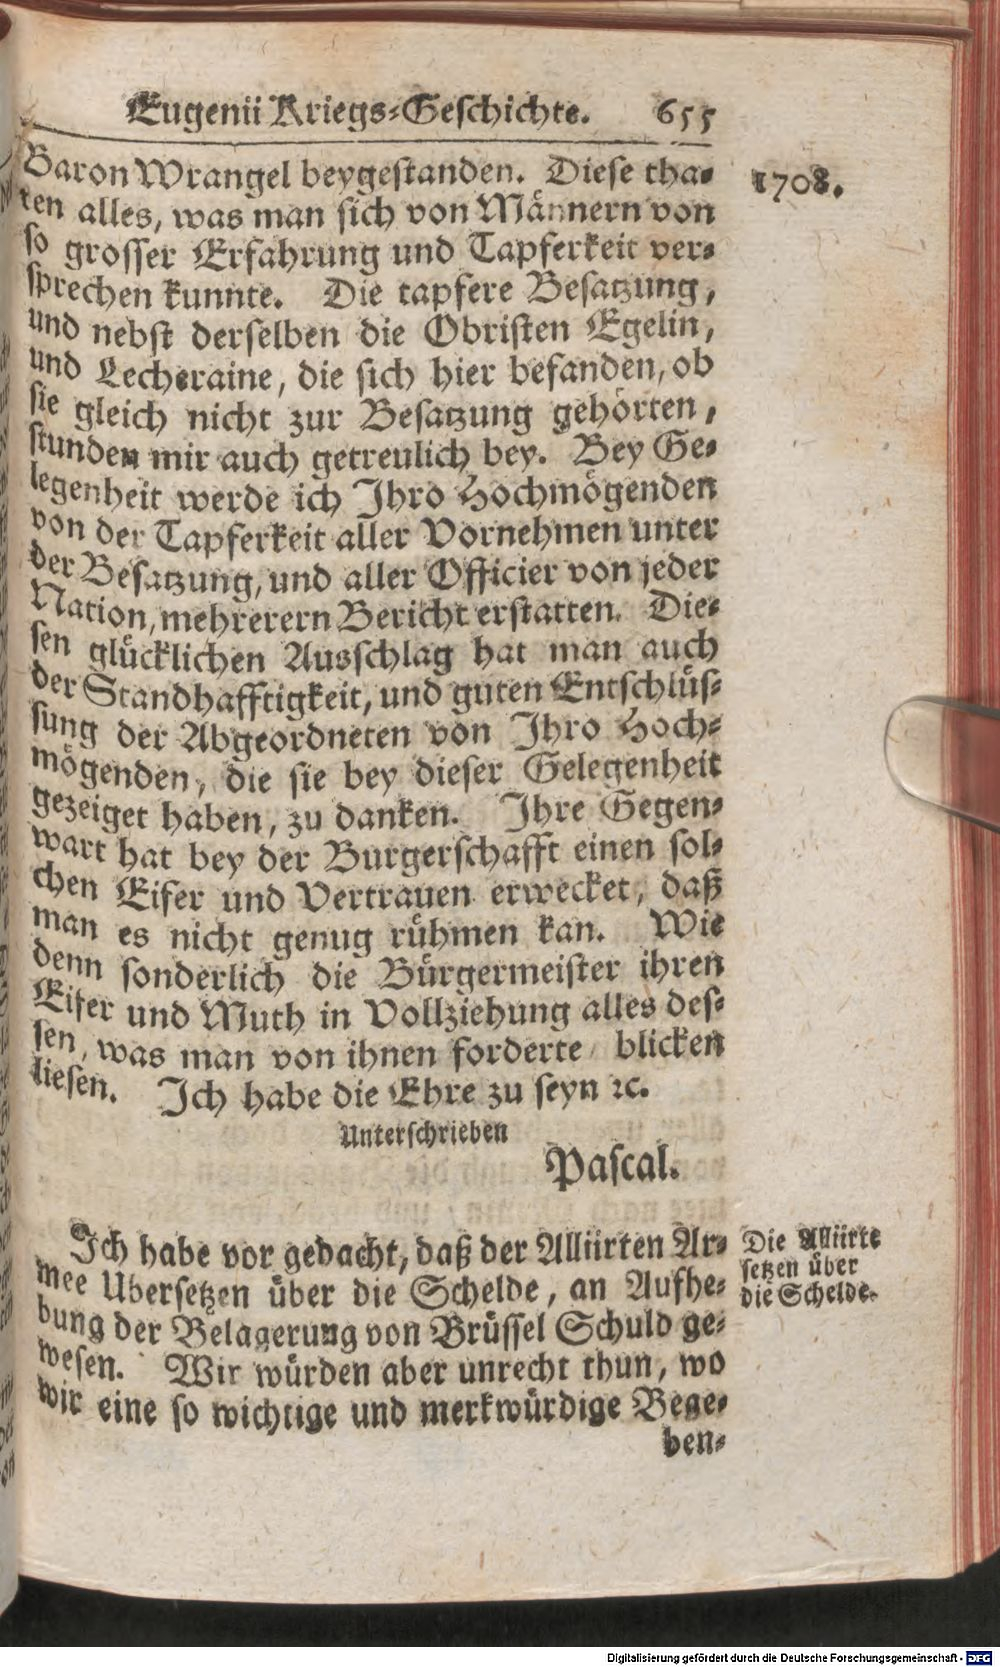 Eugenii Kriegs-Geschichte. 655
Baron Wrangel beygestanden. Diese tha-
ten alles, was man sich von Männern von
so grosser Erfahrung und Tapferkeit ver-
sprechen kunnte. Die tapfere Besatzung,
und nebst derselben die Obristen Egelin,
und Lecheraine, die sich hier befanden, ob
sie gleich nicht zur Besatzung gehörten,
stunden mir auch getreulich bey. Bey Ge-
legenheit werde ich Ihro Hochmögenden
von der Tapferkeit aller Vornehmen unter
der Besatzung, und aller Officier von jeder
Nation, mehrerern Bericht erstatten. Die-
sen glücklichen Ausschlag hat man auch
der Standhafftigkeit, und guten Entschlüs-
sung der Abgeordneten von Ihro Hoch-
mögenden, die sie bey dieser Gelegenheit
gezeiget haben, zu danken. Ihre Gegen-
wart hat bey der Burgerschafft einen sol-
chen Eifer und Vertrauen erwecket, daß
man es nicht genug rühmen kan. Wie
denn sonderlich die Bürgermeister ihren
Eifer und Muth in Vollziehung alles des-
sen, was man von ihnen forderte / blicken
liesen. Ich habe die Ehre zu seyn ꝛc.
Unterschrieben
Pascal.
Ich habe vor gedacht, daß der Alliirten Ar-
mee Ubersetzen über die Schelde, an Aufhe-
bung der Belagerung von Brüssel Schuld ge-
wesen. Wir würden aber unrecht thun, wo
wir eine so wichtige und merkwürdige Bege-
ben-
1708.
Die Alliirte
setzen über
die Schelde.
Digitalisierung gefördert durch die Deutsche Forschungsgemeinschaft - DFG